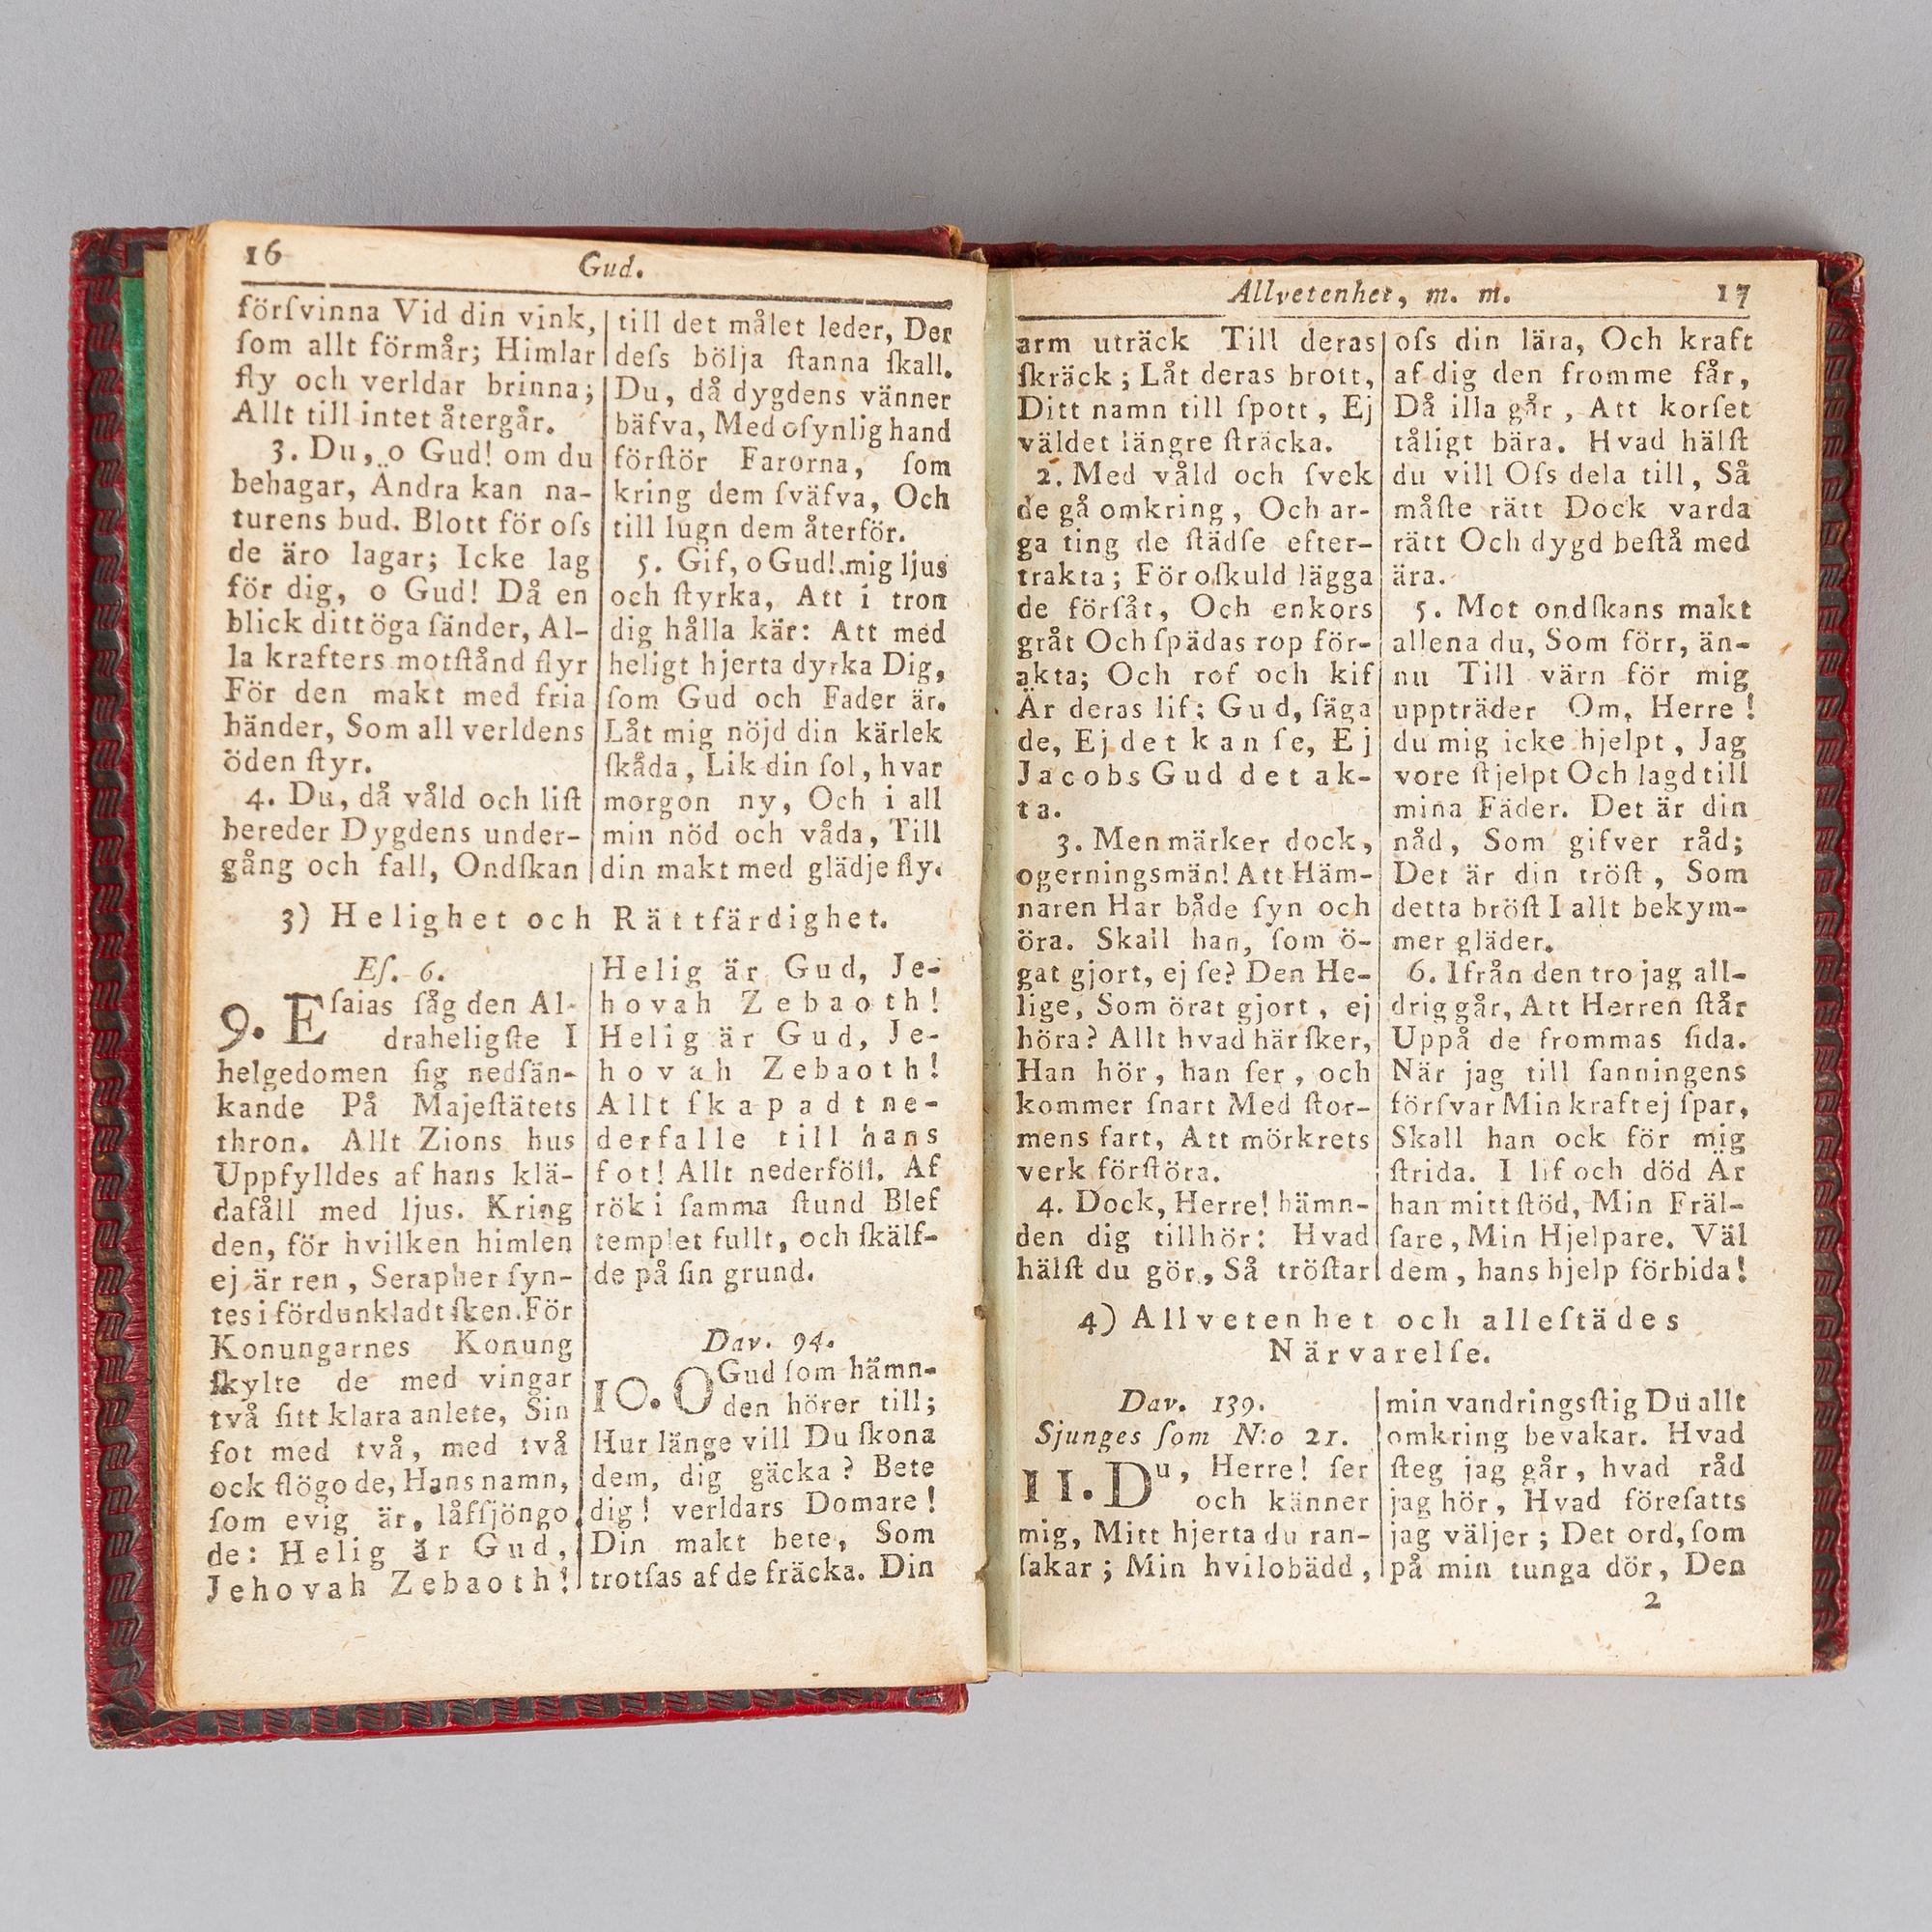 16
Gud.
förſvinna Vid din vink,
ſom allt förmår; Himlar
fly och verldar brinna;
Allt till intet återgår.
3. Du, o Gud! om du
behagar, Ändra kan na-
turens bud. Blott för oſs
de äro lagar; Icke lag
för dig, o Gud! Då en
blick ditt öga ſänder, Al-
la krafters motſtånd flyr
För den makt med fria
händer, Som all verldens
öden ſtyr.
4. Du, då våld och liſt
bereder Dygdens under-
gång och fall, Ondſkan
till det målet leder, Der
deſs bölja ſtanna ſkall.
Du, då dygdens vänner
bäfva, Med oſynlig hand
förſtör Farorna, ſom
kring dem ſväfva, Och
till lugn dem återför.
5. Gif, o Gud! mig ljus
och ſtyrka, Att i tron
dig hålla kär: Att med
heligt hjerta dyrka Dig,
ſom Gud och Fader är.
Låt mig nöjd din kärlek
ſkåda, Lik din ſol, hvar
morgon ny, Och i all
min nöd och våda, Till
din makt med glädje fly.
3) Helighet och Rättfärdighet.
Eſ. 6.
9. Eſaias ſåg den Al-
draheligſte I
helgedomen ſig nedſän-
kande På Majeſtätets
thron. Allt Zions hus
Uppfylldes af hans klä-
dafåll med ljus. Kring
den, för hvilken himlen
ej är ren, Serapher ſyn-
tes i fördunkladt ſken. För
Konungarnes Konung
ſkylte de med vingar
två ſitt klara anlete, Sin
fot med två, med två
ock flögo de, Hans namn,
ſom evig är, låfſjöngo
de: Helig är Gud,
Jehovah Zebaoth!
Helig är Gud, Je-
hovah Zebaoth!
Helig är Gud, Je-
hovah Zebaoth!
Allt ſkapadt ne-
derfalle till hans
fot! Allt nederföll. Af
rök i ſamma ſtund Blef
templet fullt, och ſkälf-
de på ſin grund.
Dav. 94.
10. O Gud ſom hämn-
den hörer till;
Hur länge vill Du ſkona
dem, dig gäcka? Bete
dig! verldars Domare!
Din makt bete, Som
trotſas af de fräcka. Din
Allvetenhet, m. m.
17
arm uträck Till deras
ſkräck; Låt deras brott,
Ditt namn till ſpott, Ej
väldet längre ſträcka.
2. Med våld och ſvek
de gå omkring, Och ar-
ga ting de ſtädſe efter-
trakta; För oſkuld lägga
de förſåt, Och enkors
gråt Och ſpädas rop för-
akta; Och rof och kif
Är deras lif: Gud, ſäga
de, Ej det kan ſe, Ej
Jacobs Gud det ak-
ta.
3. Men märker dock,
ogerningsmän! Att Häm-
naren Har både ſyn och
öra. Skall han, ſom ö-
gat gjort, ej ſe? Den He-
lige, Som örat gjort, ej
höra? Allt hvad här ſker,
Han hör, han ſer, och
kommer ſnart Med ſtor-
mens fart, Att mörkrets
verk förſtöra.
4. Dock, Herre! hämn-
den dig tillhör: Hvad
hälſt du gör, Så tröſtar
oſs din lära, Och kraft
af dig den fromme får,
Då illa går, Att korſet
tåligt bära. Hvad hälſt
du vill Oſs dela till, Så
måſte rätt Dock varda
rätt Och dygd beſtå med
ära.
5. Mot ondſkans makt
allena du, Som förr, än-
nu Till värn för mig
uppträder Om, Herre!
du mig icke hjelpt, Jag
vore ſtjelpt Och lagd till
mina Fäder. Det är din
nåd, Som gifver råd;
Det är din tröſt, Som
detta bröſt I allt bekym-
mer gläder.
6. Ifrån den tro jag all-
drig går, Att Herren ſtår
Uppå de frommas ſida.
När jag till ſanningens
förſvar Min kraft ej ſpar,
Skall han ock för mig
ſtrida. I lif och död Är
han mitt ſtöd, Min Fräl-
ſare, Min Hjelpare. Väl
dem, hans hjelp förbida!
4) Allvetenhet och alleſtädes
Närvarelſe.
Dav. 139.
Sjunges ſom N:o 21.
11. Du, Herre! ſer
och känner
mig, Mitt hjerta du ran-
ſakar; Min hvilobädd,
min vandringsſtig Du allt
omkring bevakar. Hvad
ſteg jag går, hvad råd
jag hör, Hvad föreſatts
jag väljer; Det ord, ſom
på min tunga dör, Den
2